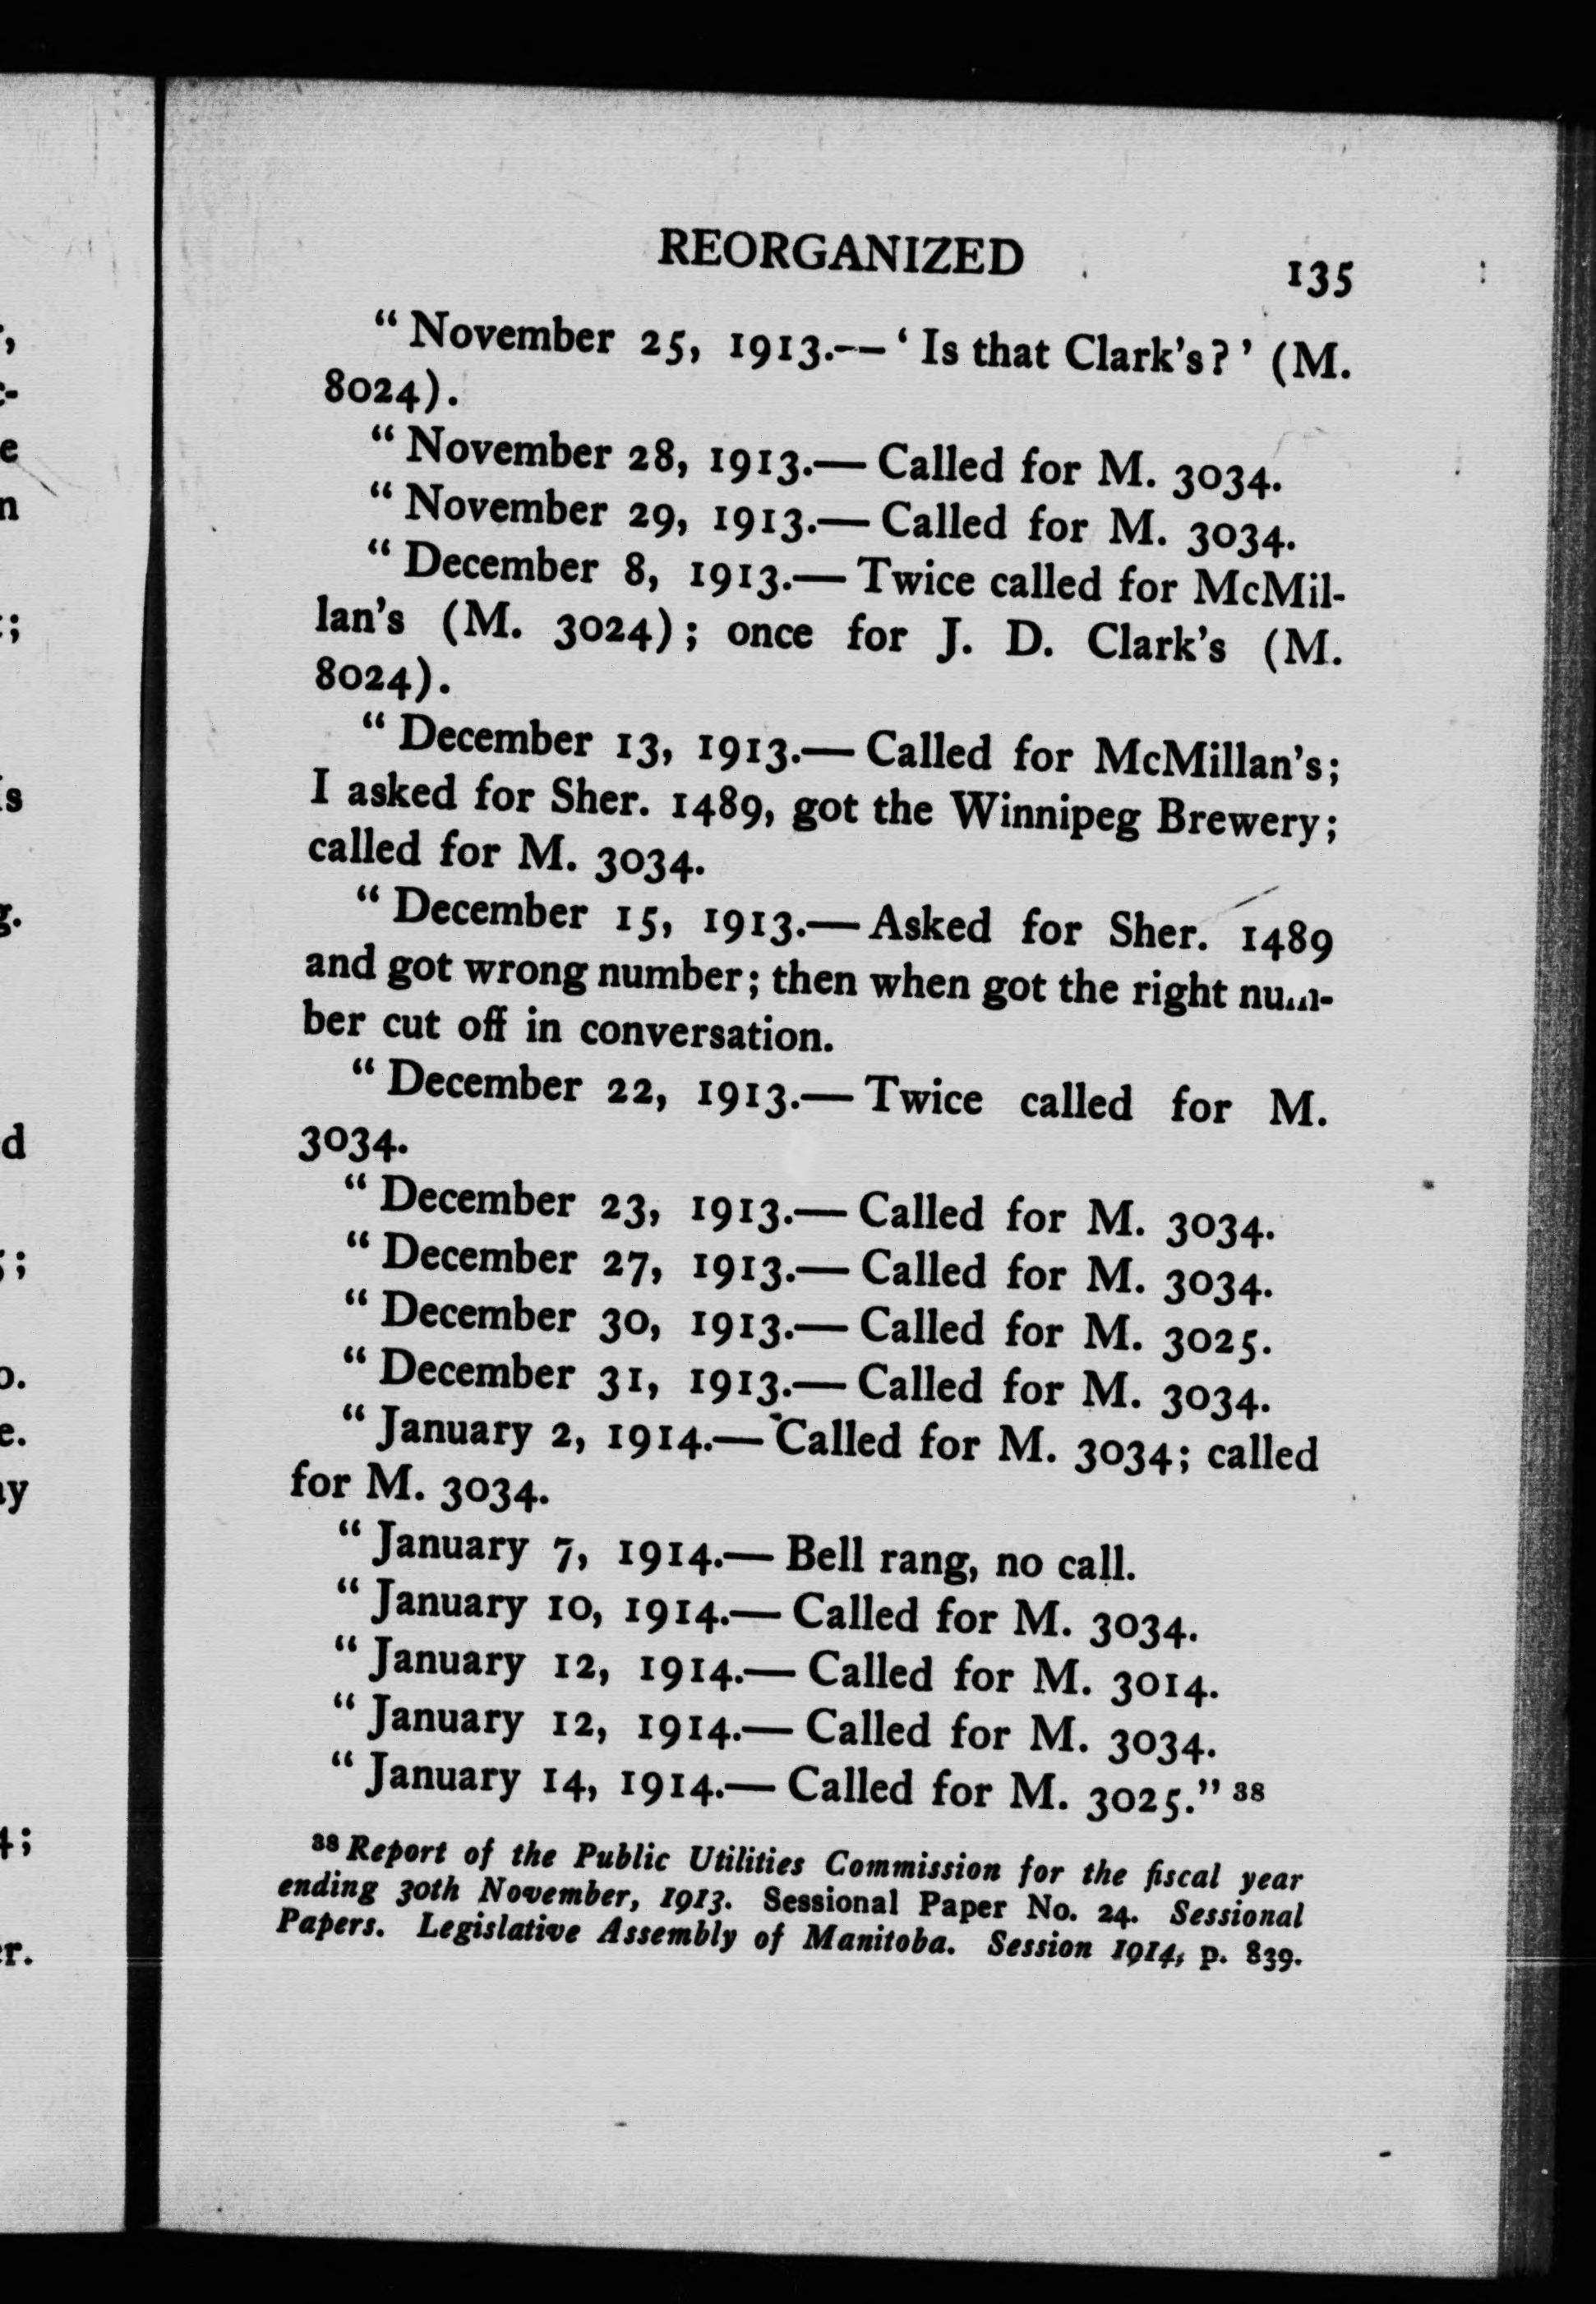 REORGANIZED
135
“ November 25, 1913.—‘ Is that Clark’s? ’ (M.
8024).
“ November 28, 1913.— Called for M. 3034.
“ November 29, 1913.— Called for M. 3034.
“ December 8, 1913.— Twice called for McMil-
lan’s (M. 3024) ; once for J. D. Clark’s (M.
8024).
“ December 13, 1913.— Called for McMillan’s;
I asked for Sher. 1489, got the Winnipeg Brewery;
called for M. 3034.
“ December 15, 1913.— Asked for Sher. 1489
and got wrong number; then when got the right num-
ber cut off in conversation.
“ December 22, 1913.— Twice called for M.
3034.
“ December 23, 1913.— Called for M. 3034.
“ December 27, 1913.— Called for M. 3034.
“ December 30, 1913.— Called for M. 3025.
“ December 31, 1913.— Called for M. 3034.
“ January 2, 1914.— Called for M. 3034; called
for M. 3034.
“ January 7, 1914.— Bell rang, no call.
“ January 10, 1914.— Called for M. 3034.
“ January 12, 1914.— Called for M. 3014.
“ January 12, 1914.— Called for M. 3034.
“ January 14, 1914.— Called for M. 3025.” 38
38 Report of the Public Utilities Commission for the fiscal year
ending 30th November, 1913. Sessional Paper No. 24. Sessional
Papers. Legislative Assembly of Manitoba. Session 1914, p. 839.